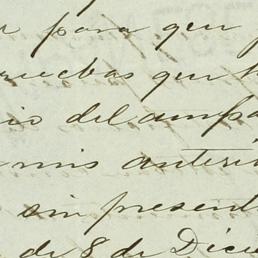 para que
ruebas que
io del ampa
mis anteri
sin present
de 8 de Dicie